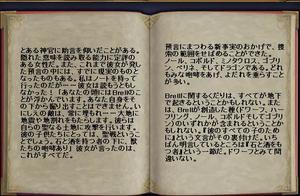 とある神官に助言を仰いだことがある。
隠れた意味を読み取る能力に定評の
ある女性だ。また、これまで彼女が発し
た預言の中には、すでに現実のものと
なったものもある。私はノートを持って
行ったのだが――彼女は読もうともし
なかった！「あなたの頭にはBrellのこ
とが浮かんでいます。あなた自身をそ
の下から掘り出すことはできません。い
にしえの敵は、常に埋もれ――大地に
地震や地割れをもたらします。彼らは
自らの聖なる土地に攻撃を行います。
彼の子供たちにとっては、聖戦というこ
とでしょう。石と酒を持つ者の下に、獣
たちの咆哮あり」。彼女が言ったのは、
これがすべてだ。
預言にまつわる新事実のおかげで、捜
索の範囲をせばめることができた。
ノール、コボルド、ミノタウロス、ゴブリ
ン、ベリネ、そしてドラゴンである。どれ
もみな咆哮をあげ、よだれを垂らすこと
が多い。
Brellに関するくだりは、すべてが地下で
起きるということかもしれない。また
は、Brellが創造した種（ドワーフ、ハー
フリング、ノール、コボルドそしてゴブリ
ン）のいずれかが含まれるということか
もしれない。『彼のすべての子のため
に』という文言がその裏付けだ。いち
ばん明言しているところは『石と酒をも
つ者』という一節だ。ドワーフとみて間
違いない。